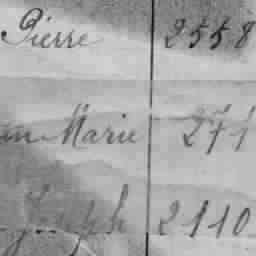 Pierre 2558
an-Marie 271
Joseph 2110